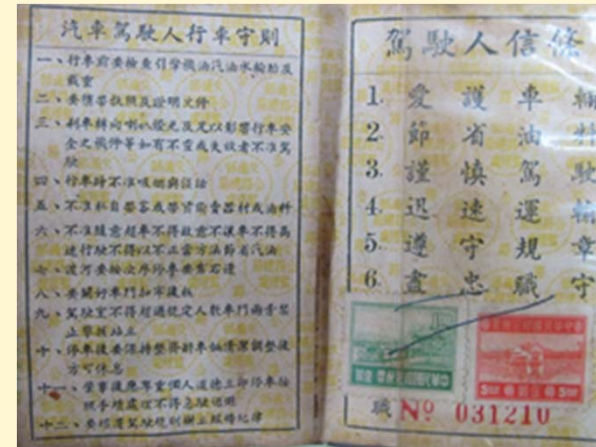 汽車駕駛人行車守則
一、行車前要檢查引擎機油汽油水輪胎及
載重
二、要慣帶執照及證明文件
三、剎車轉向喇叭燈光及足以影響行車安
全之機件等如有不靈或失效者不准駕
駛
四、行車時不准吸烟與談話
五、不准私自帶客或帶貨偷賣器材或油料
六、不准隨意超車不得故意不讓車不得高
速行駛不得以不正當方法節省汽油
七、渡河要按次序停車要靠右邊
八、要關好車門扣牢後板
九、駕駛室不得超過規定人數車門兩旁禁
止攀援站立
十、停車後要保持整齊對車輛清潔調整後
方可休息
十一、肇事後應尊重個人道德立即停車按
照手續處理不得急駛逃避
十二、要
駕駛人信條
1. 愛護車輛
2. 節省油料
3. 謹慎駕駛
4. 迅速運輸
5. 遵守規章
6. 盡忠職守
職 No 031210